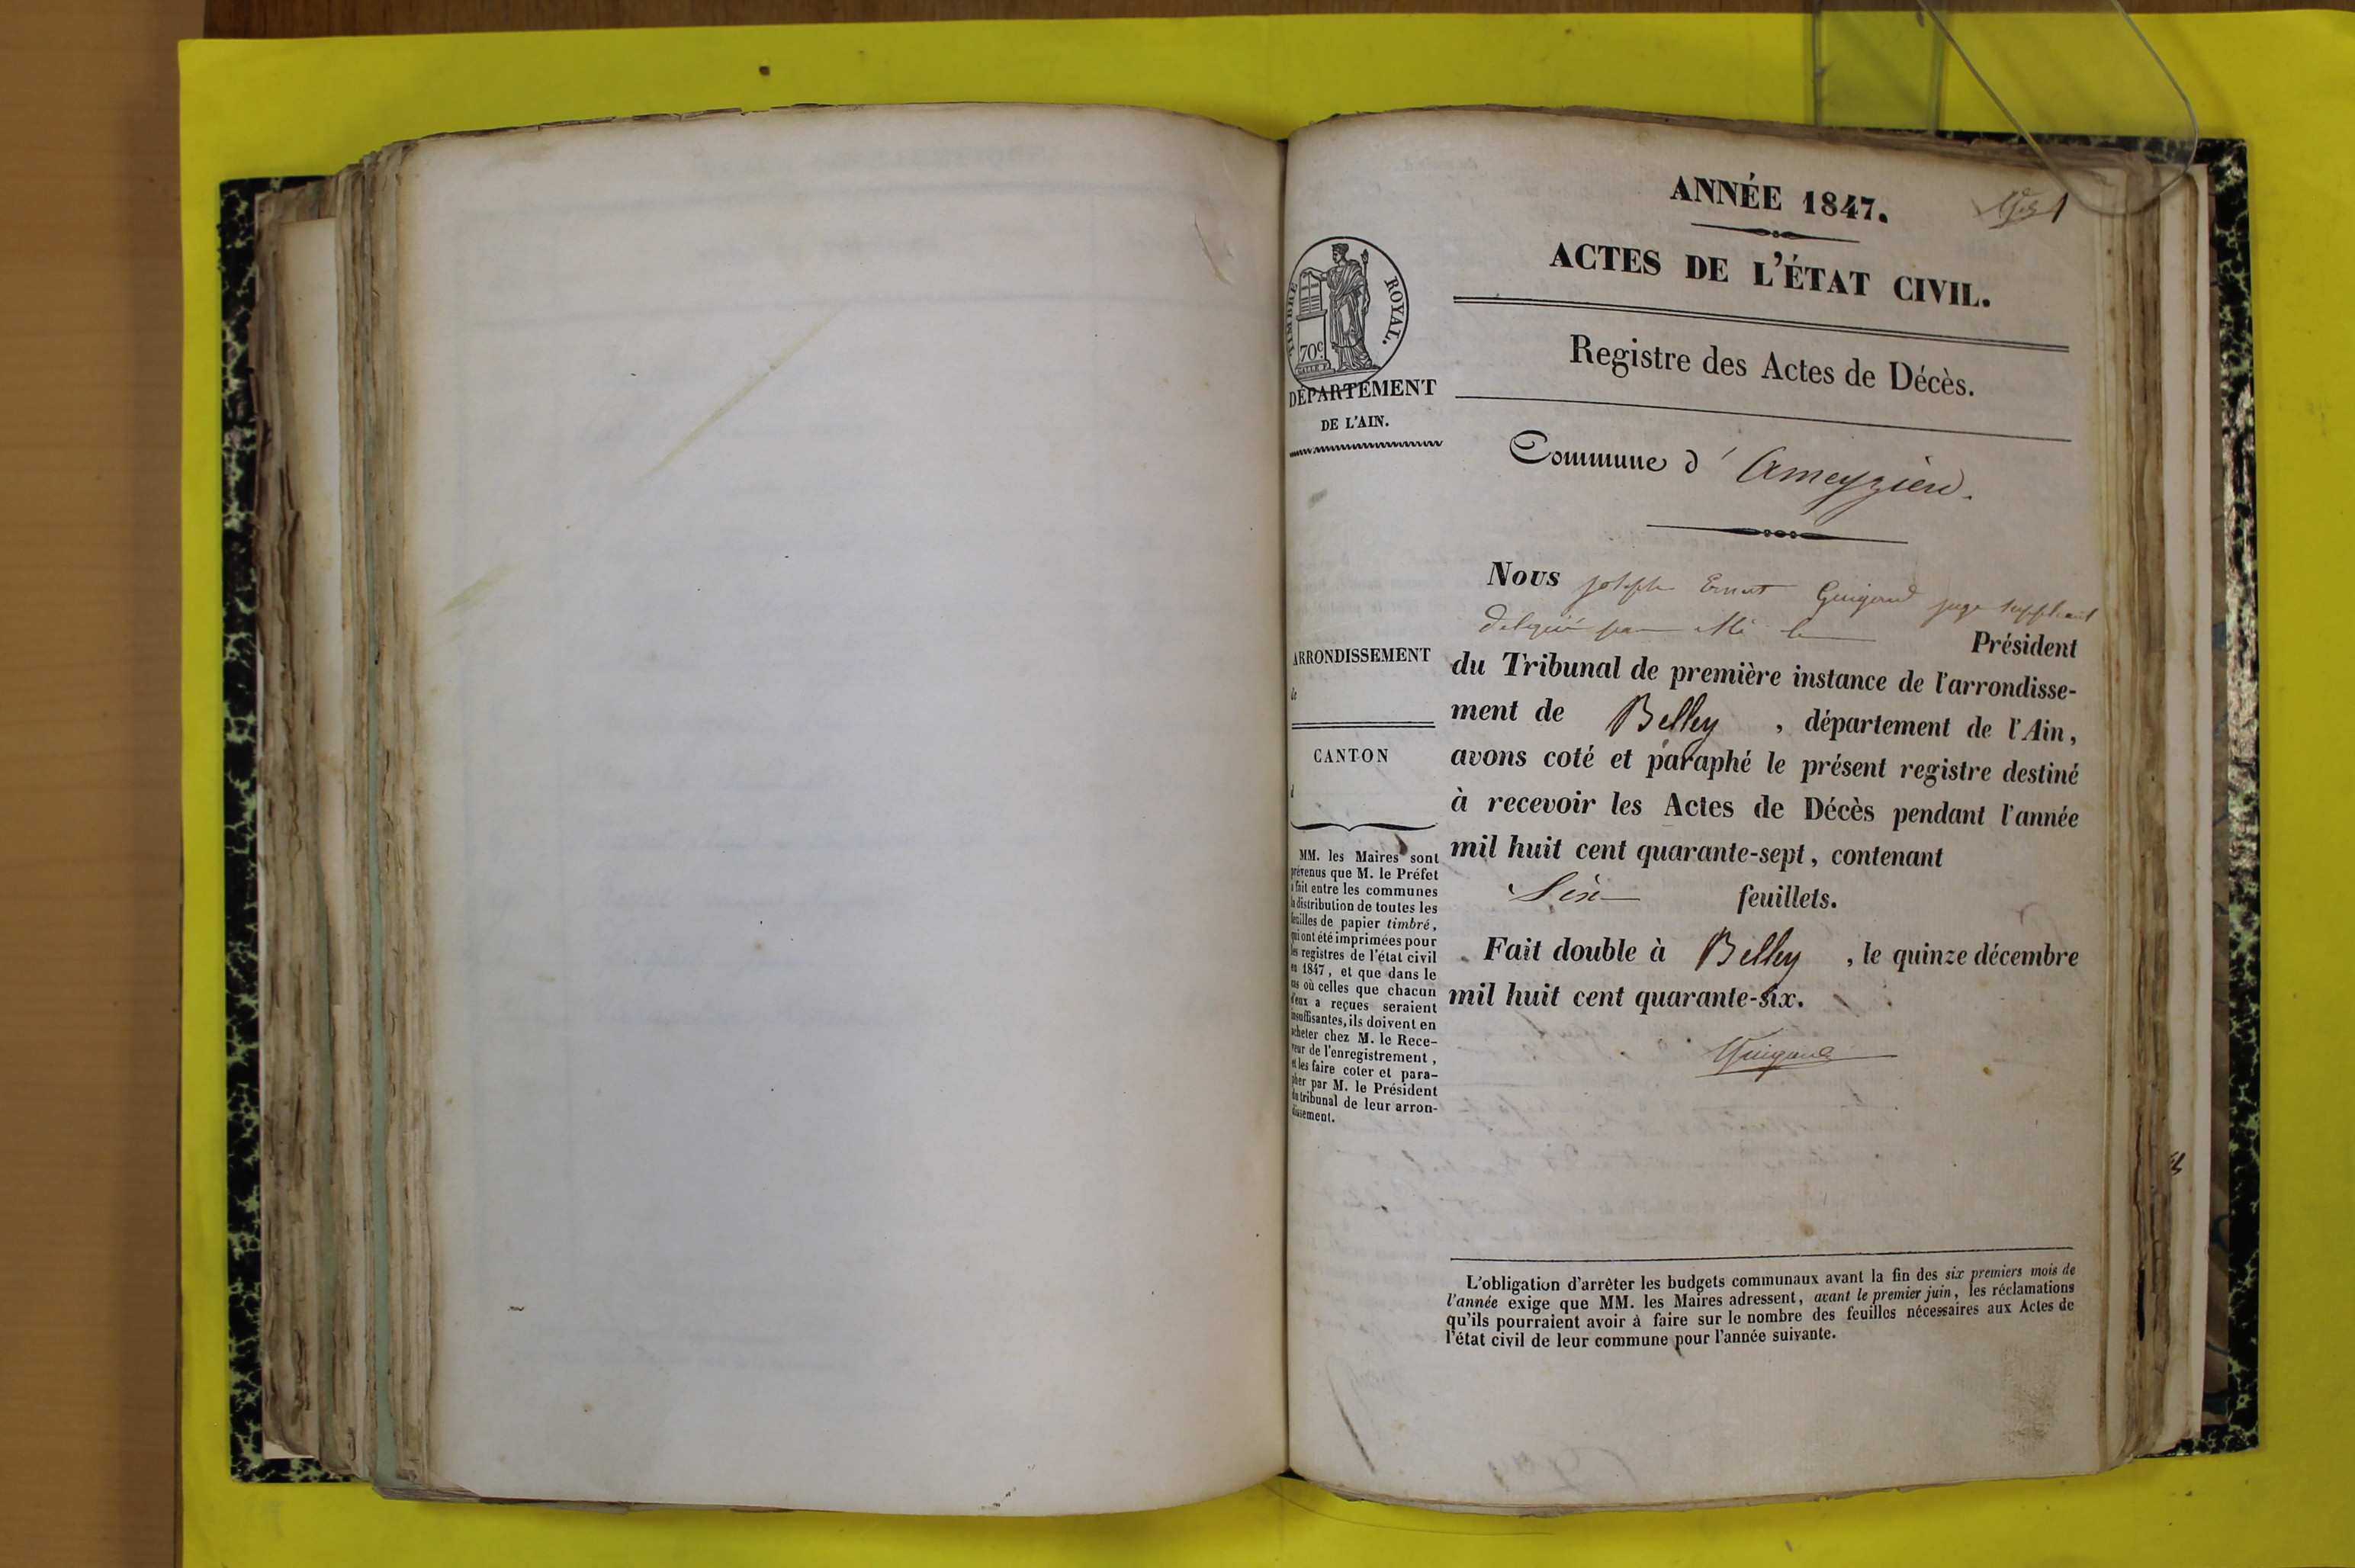 ANNÉE 1847.
1
ACTES DE L'ÉTAT CIVIL.
TIMBRE ROYAL.
70c
Registre des Actes de Décès.
DÉPARTEMENT
DE L'AIN.
Commune d'Ameyzieu.
Nous joseph Ernest Guigard juge suppléant
délégué par Mr le Président
du Tribunal de première instance de l'arrondisse-
ment de Belley, département de l'Ain,
avons coté et paraphé le présent registre destiné
à recevoir les Actes de Décès pendant l'année
mil huit cent quarante-sept, contenant
Six feuillets.
Fait double à Belley, le quinze décembre
mil huit cent quarante-six.
ARRONDISSEMENT
de
CANTON
d
MM. les Maires sont
prévenus que M. le Préfet
a fait entre les communes
la distribution de toutes les
feuilles de papier timbré,
qui ont été imprimées pour
les registres de l'état civil
en 1847, et que dans le
cas où celles que chacun
d'eux a reçues seraient
insuffisantes, ils doivent en
acheter chez M. le Rece-
veur de l'enregistrement,
et les faire coter et para-
pher par M. le Président
du tribunal de leur arron-
dissement.
L'obligation d'arrêter les budgets communaux avant la fin des six premiers mois de
l'année exige que MM. les Maires adressent, avant le premier juin, les réclamations
qu'ils pourraient avoir à faire sur le nombre des feuilles nécessaires aux Actes de
l'état civil de leur commune pour l'année suivante.